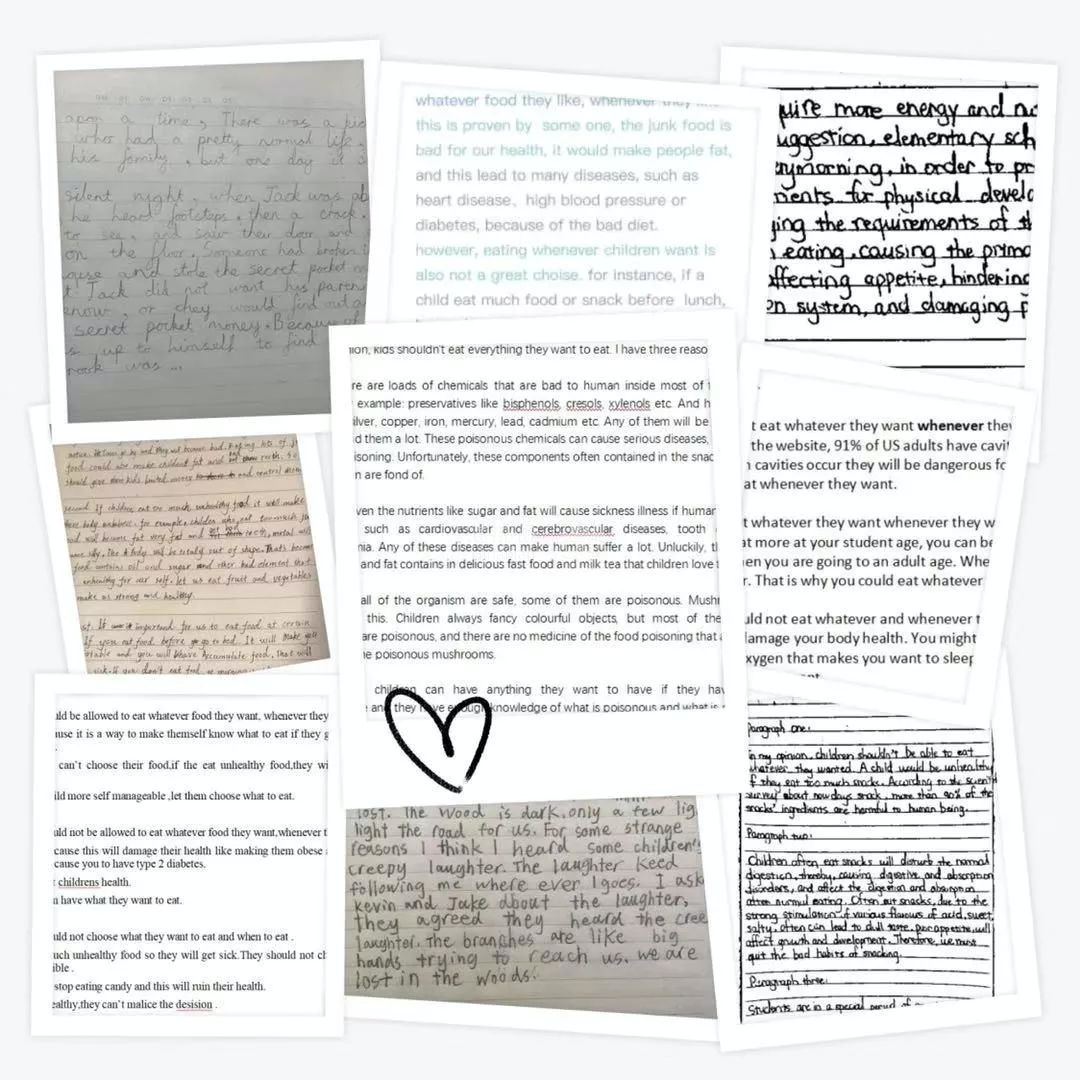 apon a time, There was a
who had a pretty normal life,
his family, but one day it
silent night, when Jack was
he heard footsteps, then a crack.
to see, and saw their door
on the floor. Someone had broken
and stole the secret pocket
Jack did not want his
or they would find out
secret pocket money. Because
up to himself to find
was ...
whatever food they like, whenever they
this is proven by some one, the junk food is
bad for our health, it would make people fat,
and this lead to many diseases, such as
heart disease、high blood pressure or
diabetes, because of the bad diet.
however, eating whenever children want is
also not a great choise. for instance, if a
child eat much food or snack before lunch,
quire more energy and
uggestion, elementary sch
morning, in order to pr
ments for physical develo
ing the requirements of
eating, causing the prima
affecting appetite, hindering
system, and damaging
ion, kids shouldn't eat everything they want to eat. I have three reaso
re are loads of chemicals that are bad to human inside most of
example: preservatives like bisphenols, cresols, xylenols etc. And h
ilver, copper, iron, mercury, lead, cadmium etc. Any of them will be
d them a lot. These poisonous chemicals can cause serious diseases,
isoning. Unfortunately, these components often contained in the snac
n are fond of.
ven the nutrients like sugar and fat will cause sickness illness if human
such as cardiovascular and cerebrovascular diseases, tooth
nia. Any of these diseases can make human suffer a lot. Unluckily,
and fat contains in delicious fast food and milk tea that children love
all of the organism are safe, some of them are poisonous. Mushr
this. Children always fancy colourful objects, but most of the
are poisonous, and there are no medicine of the food poisoning that
e poisonous mushrooms.
children can have anything they want to have if they hav
and they have enough knowledge of what is poisonous and what is
t eat whatever they want whenever they
the website, 91% of US adults have cavit
n cavities occur they will be dangerous fo
at whenever they want.
t whatever they want whenever they w
at more at your student age, you can be
en you are going to an adult age. Whe
r. That is why you could eat whatever
uld not eat whatever and whenever t
damage your body health. You might
xygen that makes you want to sleep
food could also make children fat and
should give their kids limited money and control them
second. If children eat too much unhealthy food it will make
there body unbalance. for example, childen who eat too much
food will become fat very fat and get bad teeth,
be totaly out of shape. Thats because
food contains oil and sugar and other bad element that
unhealthy for our self. let us eat fruit and vegetables
make us strong and healthy.
If important for us to eat food at certain
If you eat food before go to bed. It will make you
and you will accumulate food. That will
uld be allowed to eat whatever food they want, whenever they
use it is a way to make themself know what to eat if they g
can't choose their food,if the eat unhealthy food,they wi
ild more self manageable ,let them choose what to eat.
uld not be allowed to eat whatever food they want,whenever t
cause this will damage their health like making them obese
cause you to have type 2 diabetes.
childrens health.
n have what they want to eat.
uld not choose what they want to eat and when to eat .
uch unhealthy food so they will get sick.They should not ch
ible .
stop eating candy and this will ruin their health.
ealthy,they can't malice the desision .
lost. The wood is dark, only a few lig
light the road for us. For some strange
reasons I think I heard some children's
creepy laughter. The laughter keed
following me where ever I goes. I ask
kevin and Jake about the laughter,
they agreed they heard the cree
laughter. The branches are like big
hands trying to reach us. we are
lost in the woods.
Paragraph one:
in my opinion, children shouldn't be able to eat
whatever they wanted. A child would be unhealthy
if they eat too much snacks. According to the scienti
survey about now days snack, more than 90% of the
snacks' ingredients are harmful to human being.
Paragraph two:
Children often eat snacks will disturb the normal
digestion, thereby, causing digestive and absorption
disorders, and affect the digestion and absorption
after normal eating. Often eat snacks, due to the
strong stimulation of various flavours of acid, sweet,
salty, often can lead to dull taste, poor appetite, will
affect growth and development. Therefore, we must
quit the bad habits of snacking.
Paragraph three:
Students are in a special period of